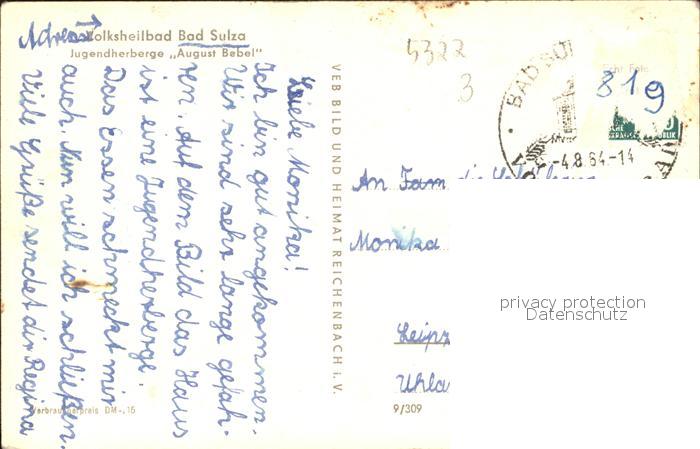 Adresse →
Volksheilbad Bad Sulza
Jugendherberge „August Bebel"
Liebe Monika!
Ich bin gut angekommen.
Wir sind sehr lange gefah-
ren. Auf dem Bild das Haus
ist eine Jugendherberge.
Das Essen schmeckt mir
auch. Nun will ich schließen.
Viele Grüße sendet dir Regina
Verbraucherpreis DM -,15
VEB BILD UND HEIMAT REICHENBACH i. V.
5322
3
Echt Foto
819
BAD SU
-4.8.64-14
An Fam
Monika
Leipz
Uhla
9/309
privacy protection
Datenschutz